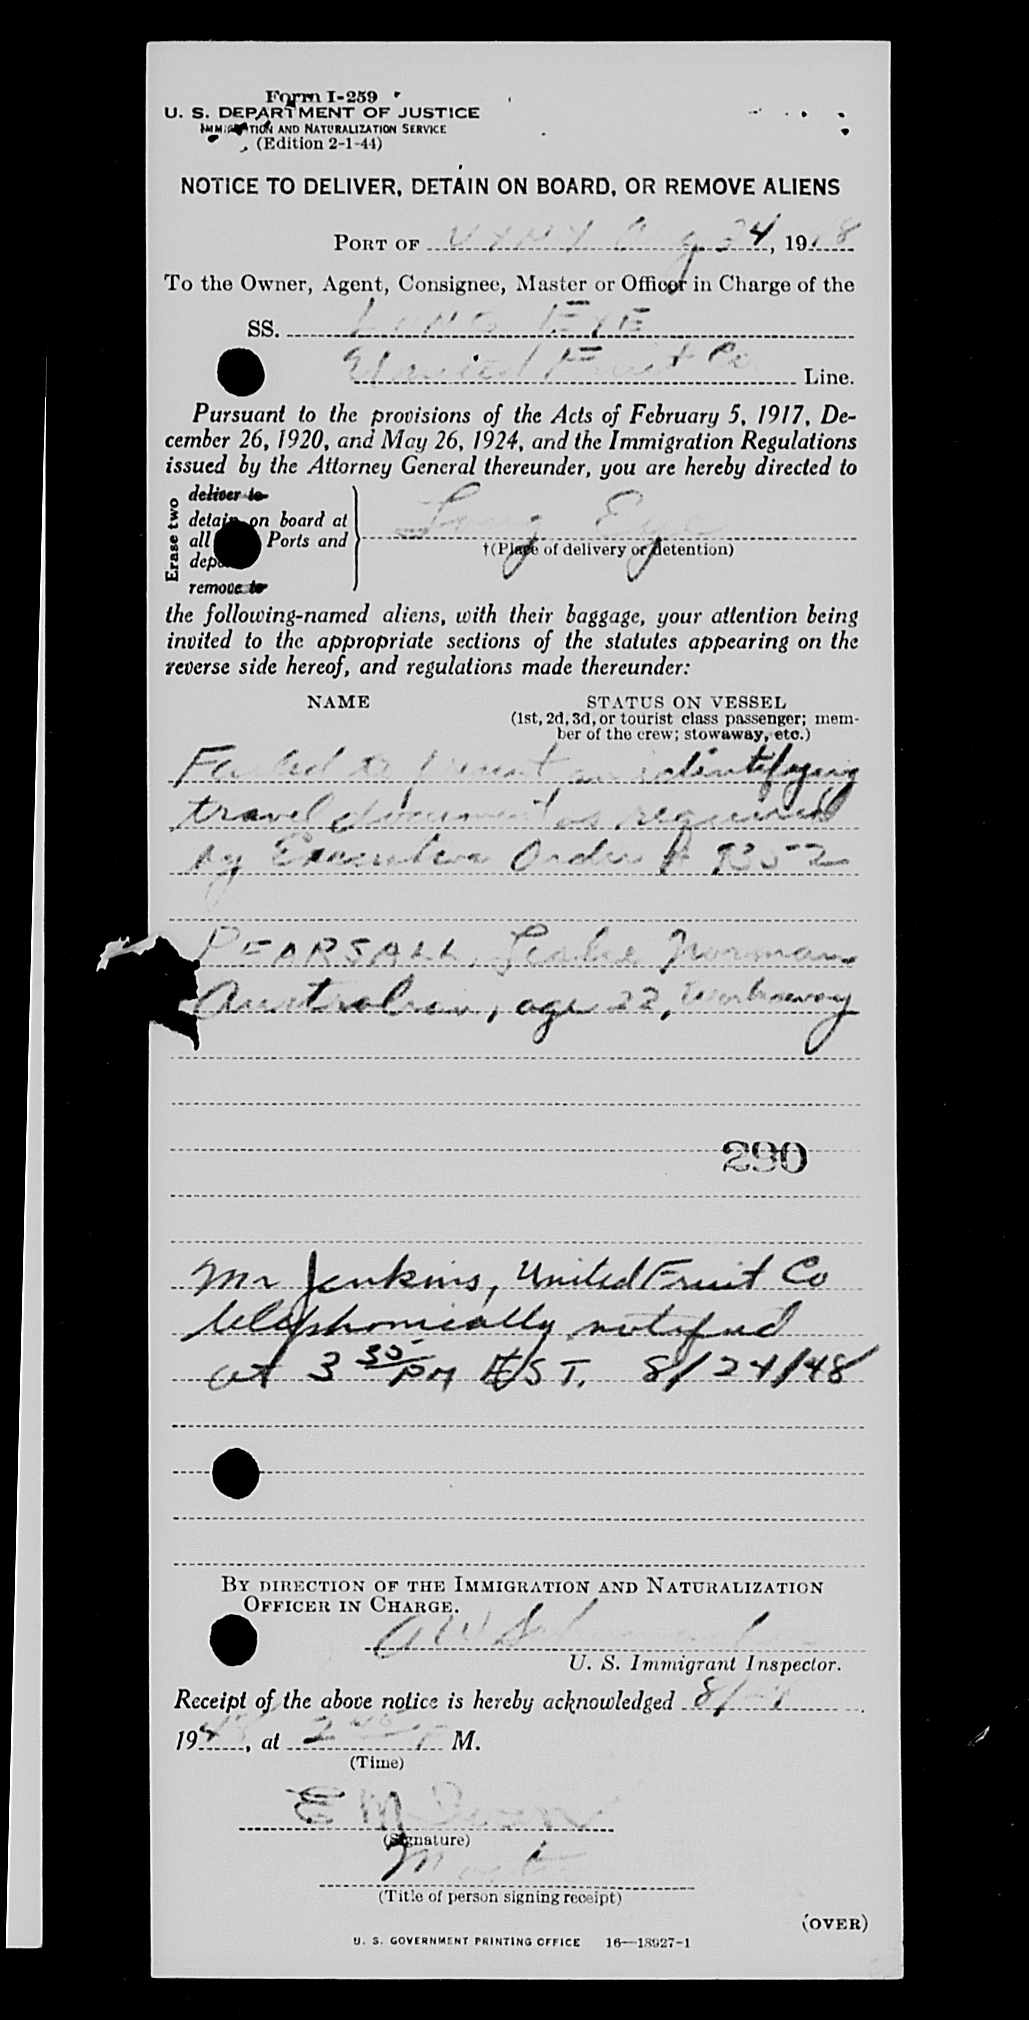 Form I-259
U. S. DEPARTMENT OF JUSTICE
IMMIGRATION AND NATURALIZATION SERVICE
(Edition 2-1-44)
NOTICE TO DELIVER, DETAIN ON BOARD, OR REMOVE ALIENS
PORT OF NYNY Aug 24, 1948
To the Owner, Agent, Consignee, Master or Officer in Charge of the
SS. LONG EYE
United Fruit Co Line.
Pursuant to the provisions of the Acts of February 5, 1917, De-
cember 26, 1920, and May 26, 1924, and the Immigration Regulations
issued by the Attorney General thereunder, you are hereby directed to
Erase two
deliver to
detain on board at
all Ports and
remove to
Long Eye
†(Place of delivery or detention)
the following-named aliens, with their baggage, your attention being
invited to the appropriate sections of the statutes appearing on the
reverse side hereof, and regulations made thereunder:
NAME STATUS ON VESSEL
(1st, 2d, 3d, or tourist class passenger; mem-
ber of the crew; stowaway, etc.)
Failed to present an identifying
travel document as required
by Executive Order # 9352
PEARSALL, Leslie Norman
Australian, age 22, Workaway
290
Mr Jenkins, United Fruit Co
telephonically notified
at 3 35 PM EST. 8/24/48
BY DIRECTION OF THE IMMIGRATION AND NATURALIZATION
OFFICER IN CHARGE.
A W
U. S. Immigrant Inspector.
Receipt of the above notice is hereby acknowledged 8/24
1948, at 2 P M.
(Time)
E M
(Signature)
Master
(Title of person signing receipt)
(OVER)
U. S. GOVERNMENT PRINTING OFFICE 16—18927-1